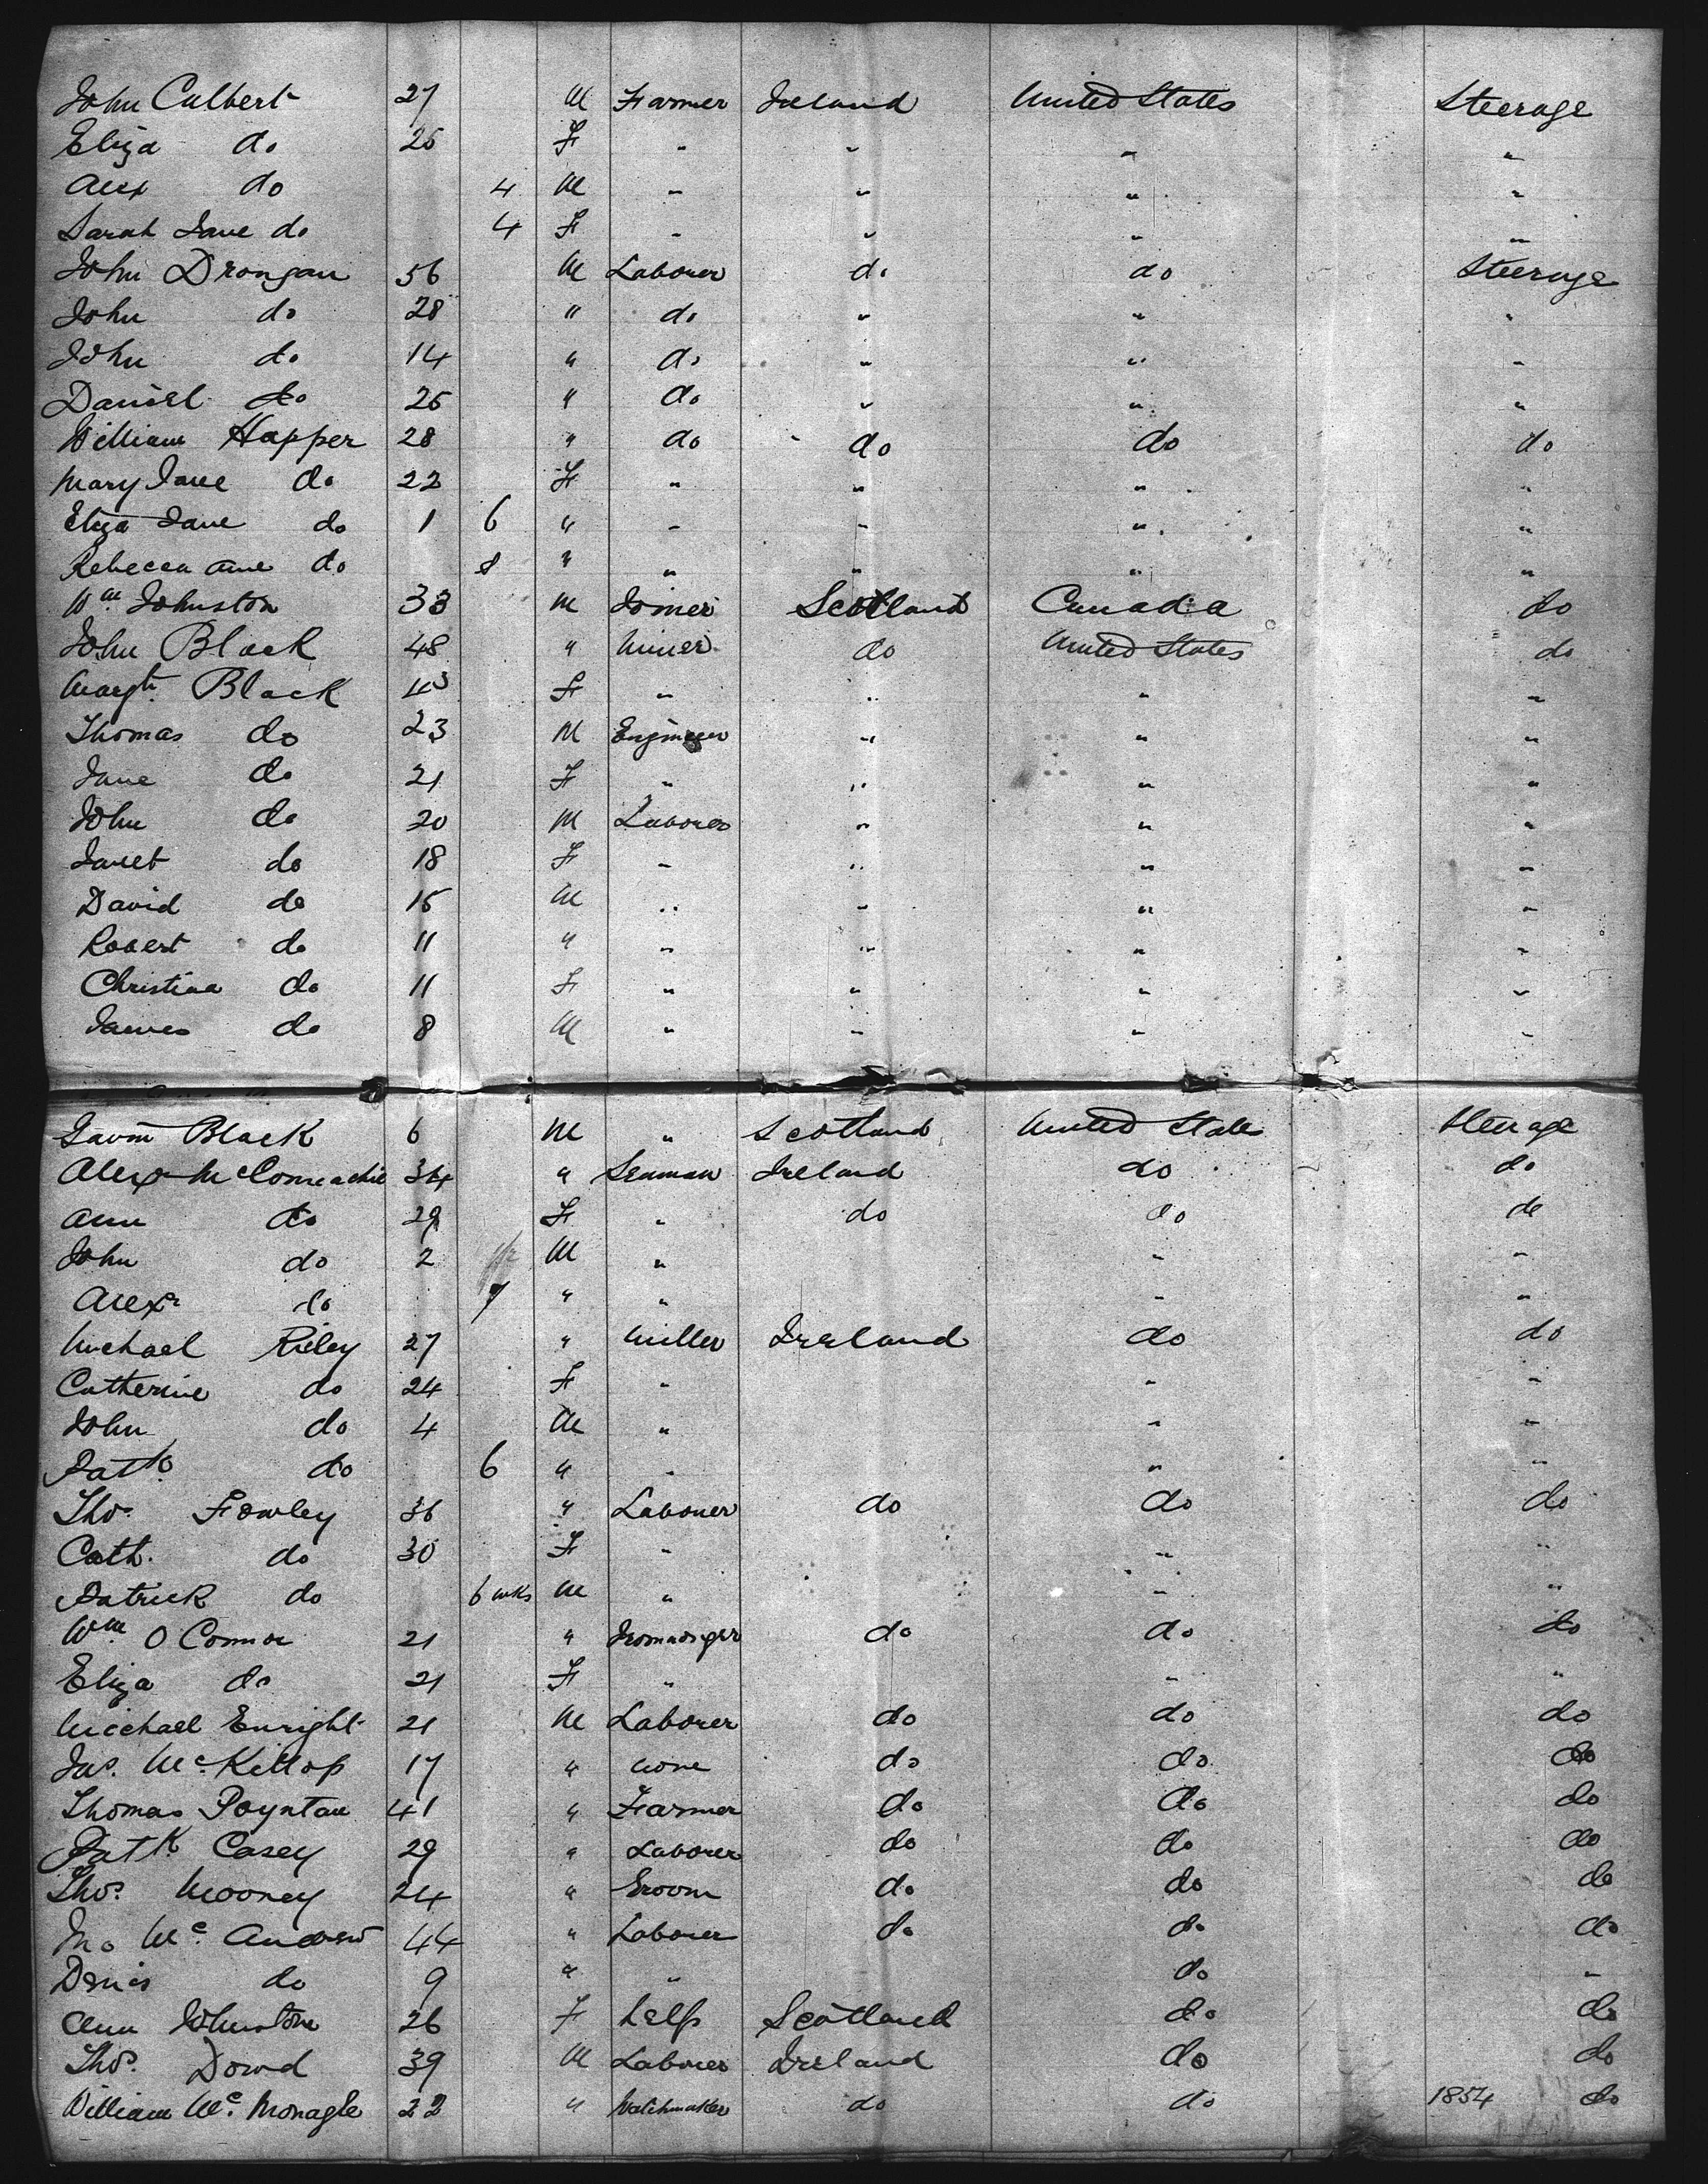 John Culbert 27 M Farmer Ireland United States Steerage
Eliza do 25 F " " " "
Alex do 4 M " " " "
Sarah Jane do 4 F " " " "
John Drongan 56 M Laborer do do Steerage
John do 28 " do " " "
John do 14 " do " " "
Daniel do 25 " do " " "
William Happer 28 " do do do do
Mary Jane do 22 F " " " "
Eliza Jane do 1 6 " " " " "
Rebecca Ane do 8 " " " " "
Wm Johnston 33 M Joiner Scotland Canada do
John Black 48 " Miner do United States do
Margt Black 43 F " " " "
Thomas do 23 M Engineer " " "
Jane do 21 F " " " "
John do 20 M Laborer " " "
Janet do 18 F " " " "
David do 15 M " " " "
Robert do 11 " " " " "
Christina do 11 F " " " "
James do 8 M " " " "
Gavin Black 6 M " Scotland United States Steerage
Alexr 34 " Seaman Ireland do do
Ann do 29 F " do do do
John do 2 M " " "
Alexr do 7 " " " "
Michael Rieley 27 " Miller Ireland do do
Catherine do 24 F " " "
John do 4 M " " "
Patk do 6 " " " "
Thos Fowley 36 " Laborer do do do
Cath. do 30 F " " "
Patrick do 6 wks M " " "
Wm O Connor 21 " Iromonger do do do
Eliza do 21 F " " "
Michael Enright 21 M Laborer do do do
Jas. McKillop 17 " none do do do
Thomas Poyntan 41 " Farmer do do do
Patk Casey 29 " Laborer do do do
Thos. Mooney 24 " Groom do do do
Jno Mc. Andrew 44 " Laborer do do do
Denis do 9 " " do "
Ann Johnstone 26 F help Scotland do do
Thos. Dowd 39 M Laborer Ireland do do
William Mc. Monagle 22 " Watchmaker do do 1854 do